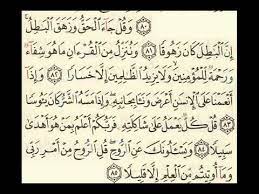 ٨٠ وَقُلْ جَآءَ ٱلْحَقُّ وَزَهَقَ ٱلْبَٰطِلُ
إِنَّ ٱلْبَٰطِلَ كَانَ زَهُوقًا ٨١ وَنُنَزِّلُ مِنَ ٱلْقُرْءَانِ مَا هُوَ شِفَآءٌ
وَرَحْمَةٌ لِّلْمُؤْمِنِينَ وَلَا يَزِيدُ ٱلظَّٰلِمِينَ إِلَّا خَسَارًا ٨٢ وَإِذَآ
أَنْعَمْنَا عَلَى ٱلْإِنسَٰنِ أَعْرَضَ وَنَـَٔا بِجَانِبِهِۦ وَإِذَا مَسَّهُ ٱلشَّرُّ كَانَ يَـُٔوسًا
٨٣ قُلْ كُلٌّ يَعْمَلُ عَلَىٰ شَاكِلَتِهِۦ فَرَبُّكُمْ أَعْلَمُ بِمَنْ هُوَ أَهْدَىٰ
سَبِيلًا ٨٤ وَيَسْـَٔلُونَكَ عَنِ ٱلرُّوحِ قُلِ ٱلرُّوحُ مِنْ أَمْرِ رَبِّى
وَمَآ أُوتِيتُم مِّنَ ٱلْعِلْمِ إِلَّا قَلِيلًا ٨٥